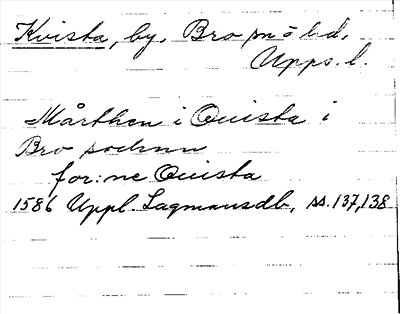 Kvista, by, Bro sn o hd,
Upps. l.
Mårthen i Quista i
Bro sochnn
for:ne Quista
1586 Uppl. Lagmansdb, ss. 137, 138